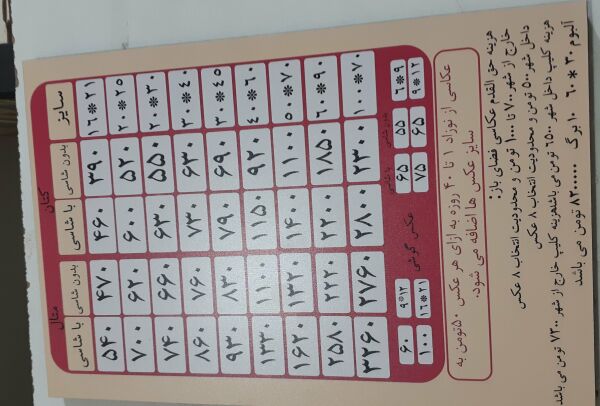 کتان متال
سایز بدون شاسی با شاسی بدون شاسی با شاسی
۱۶*۲۱ ۳۹۰ ۴۶۰ ۴۷۰ ۵۴۰
۲۰*۲۵ ۵۲۰ ۶۰۰ ۶۲۰ ۷۰۰
۲۰*۳۰ ۵۵۰ ۶۳۰ ۶۶۰ ۷۴۰
۳۰*۴۰ ۶۳۰ ۷۳۰ ۷۶۰ ۸۶۰
۳۰*۴۵ ۶۹۰ ۷۹۰ ۸۳۰ ۹۳۰
۴۰*۶۰ ۹۲۰ ۱۱۵۰ ۱۱۰۰ ۱۳۳۰
۵۰*۷۰ ۱۱۰۰ ۱۴۰۰ ۱۳۲۰ ۱۶۲۰
۶۰*۹۰ ۱۸۵۰ ۲۲۰۰ ۲۲۲۰ ۲۵۸۰
۱۰۰*۷۰ ۲۳۰۰ ۲۸۰۰ ۲۷۶۰ ۳۲۶۰
بدون شاسی با شاسی عکس گوشی
۶*۹ ۵۵ ۶۵ ۹*۱۲ ۶۰
۹*۱۲ ۶۵ ۷۵ ۱۶*۲۱ ۱۰۰
عکاسی از نوزاد ۱ تا ۴۰ روزه به ازای هر عکس ۵۰تومن به
سایز عکس ها اضافه می شود.
هزینه حق القدم عکاسی فضای باز:
خارج از شهر ۷۰۰ تا ۱۰۰۰ تومن و محدودیت انتخاب ۸ عکس
داخل شهر ۵۰۰ تومن و محدودیت انتخاب ۸ عکس
هزینه کلیپ داخل شهر ۶۵۰۰ تومن می باشدهزینه کلیپ خارج از شهر ۷۲۰۰ تومن می باشد
آلبوم ۳۰*۶۰ ۱۰ برگ ۸۲۰۰۰۰۰ تومن می باشد